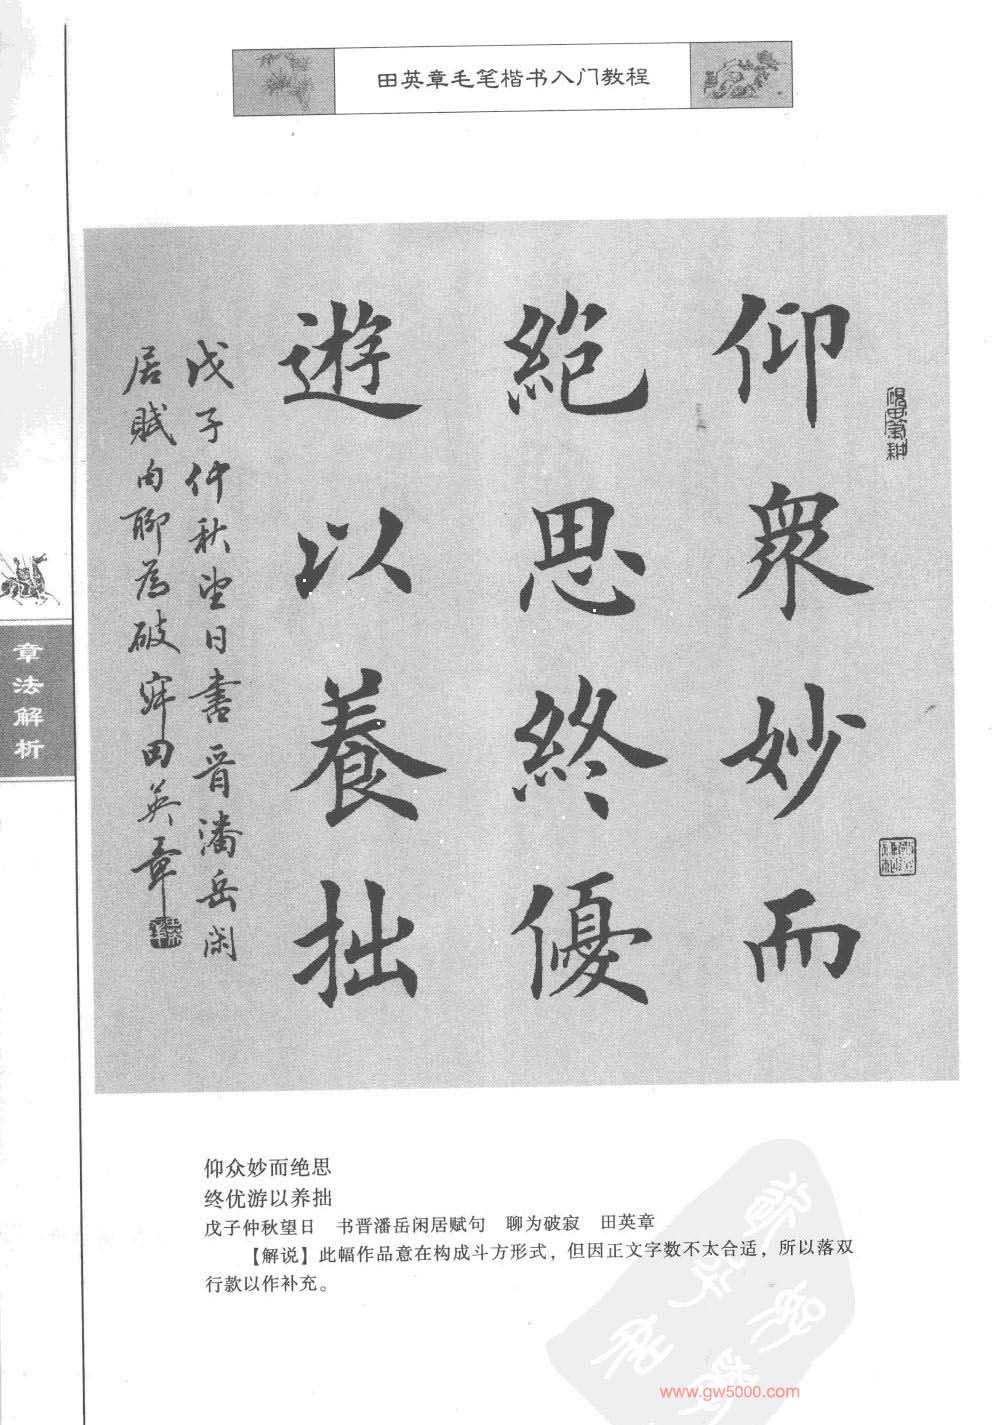 田英章毛笔楷书入门教程
仰衆妙而
絶思終優
遊以養拙
戊子仲秋望日書晉潘岳闲
居賦句聊為破寂田英章
章法解析
仰众妙而绝思
终优游以养拙
戊子仲秋望日 书晋潘岳闲居赋句 聊为破寂 田英章
【解说】此幅作品意在构成斗方形式，但因正文字数不太合适，所以落双
行款以作补充。
www.gw5000.com